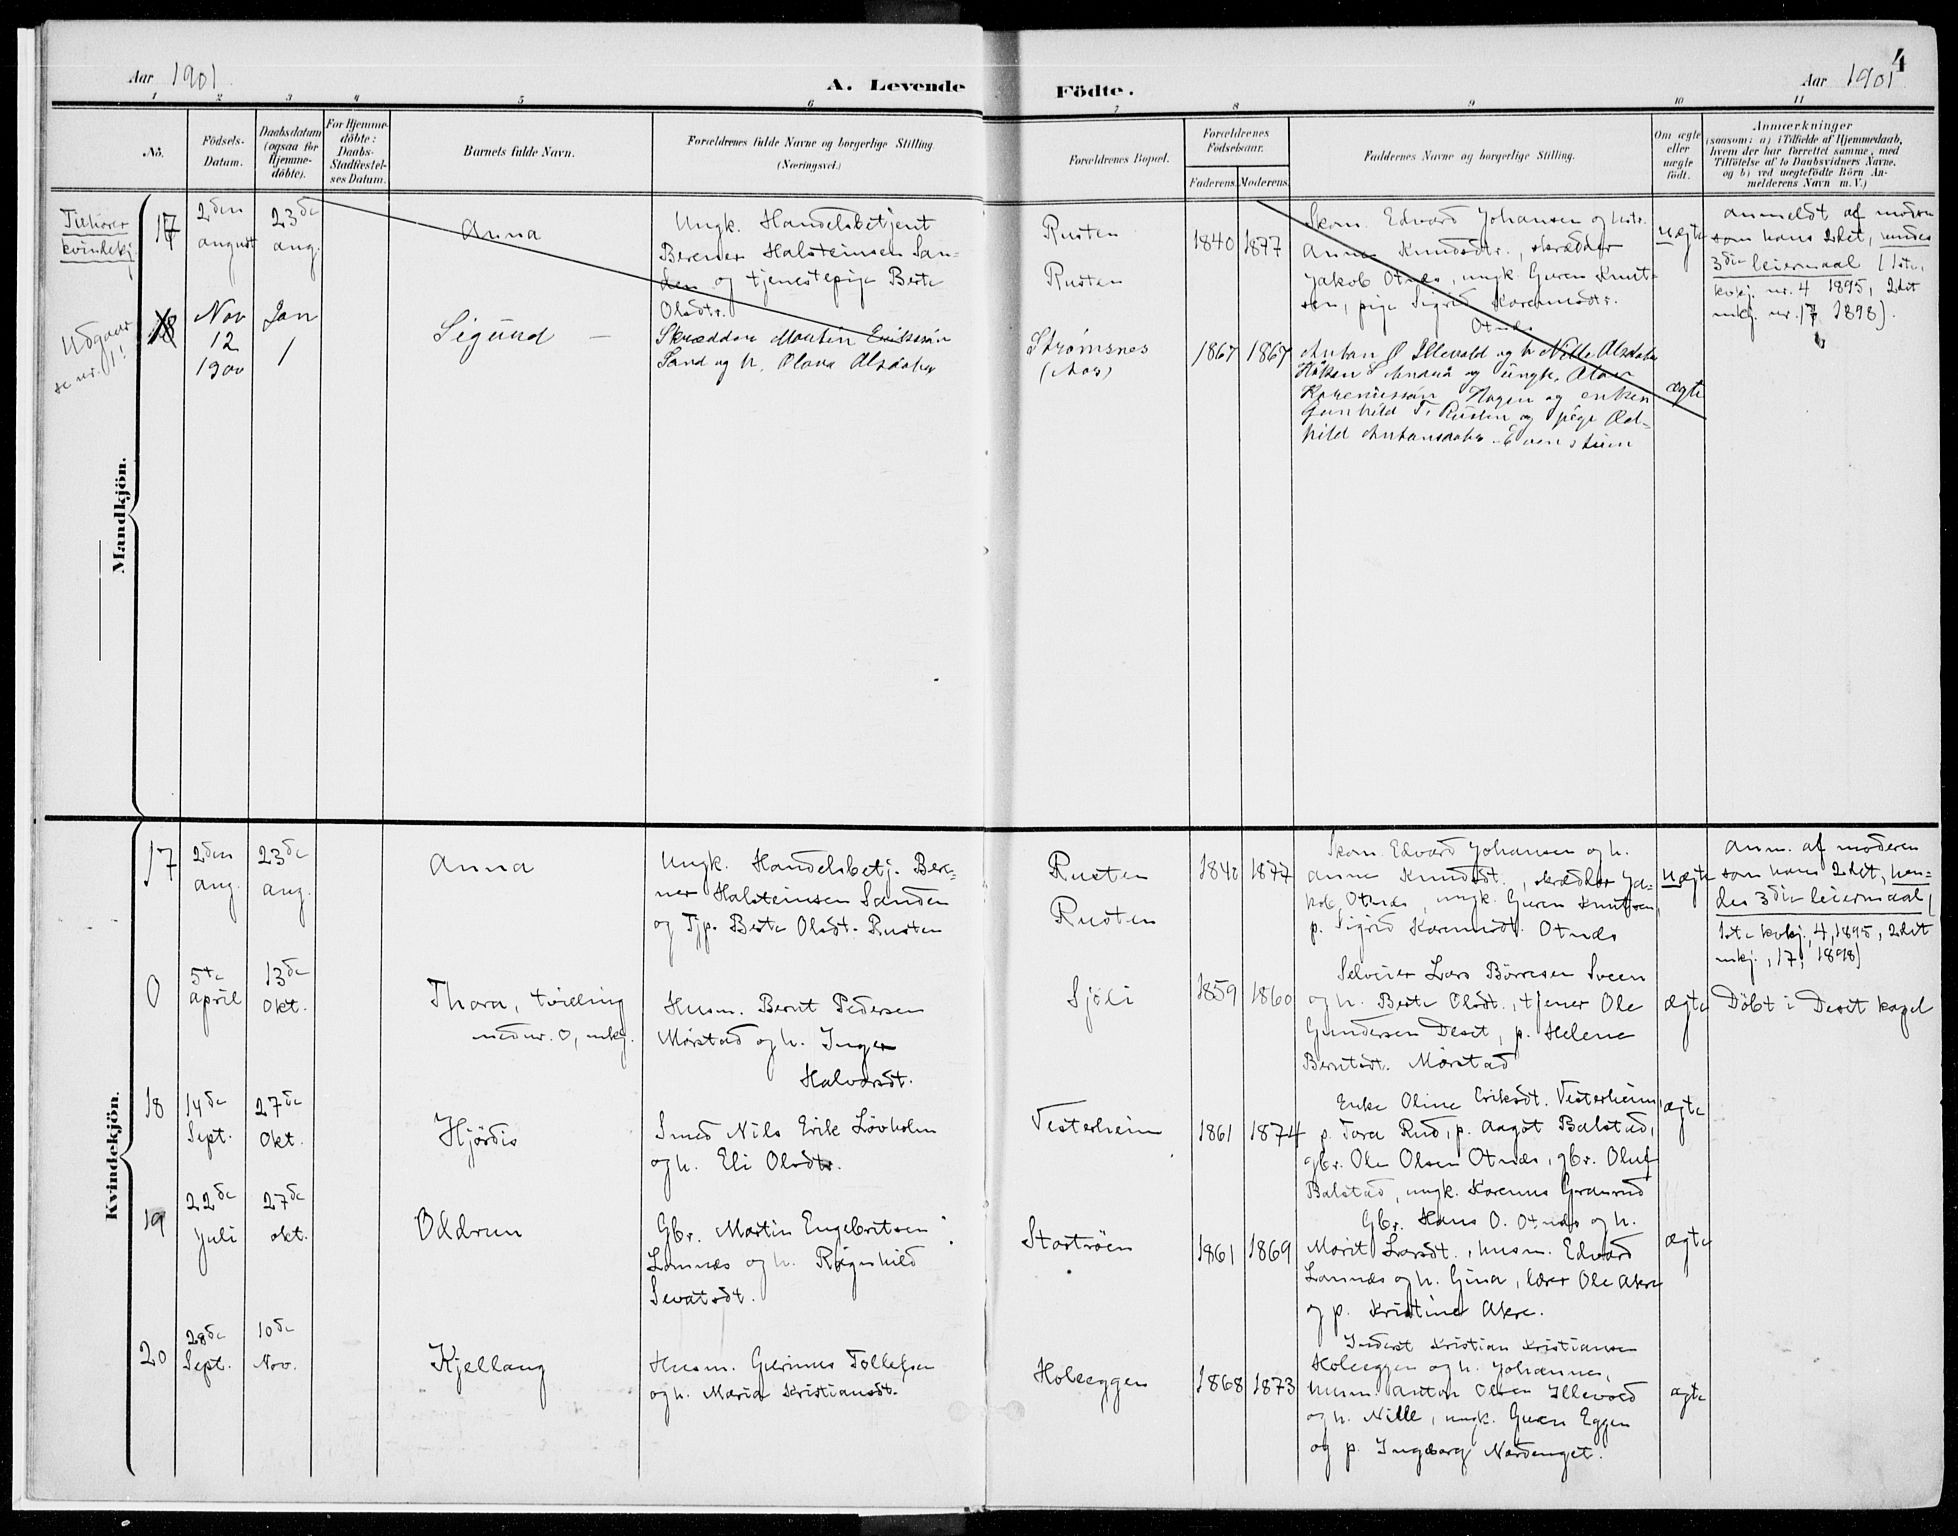 Aar 1901 A. Levende
Födte. Aar 1901 4
1 2 3 4 5 6 7 8 9 10 11
No.
Födsels-
Datum.
Daabsdatum
(ogsaa for
Hjemme-
döbte).
For Hjemme-
döbte:
Daabs-
Stadfæstel-
ses Datum.
Barnets fulde Navn.
Forældrenes fulde Navne og borgerlige Stilling
(Næringsvei.)
Forældrenes Bopæl.
Forældrenes
Födselsaar.
Faderens. Moderens.
Faddernes Navne og borgerlige Stilling.
Om ægte
eller
uægte
födt.
Anmærkninger
(saasom: a) i Tilfælde af Hjemmedaab,
hvem der har forrettet samme, med
Tilföielse af to Daabsvidners Navne.
og b) ved uægtefödte Börn An-
melderens Navn m. V.)
Mandkjön.
Tilhører
kvindekj.
17
2den
august
23de
aug.
Anna
Ungk. Handelsbetjent
Berener Halsteinsen San-
den og tjenestepige Berte
Olsdtr.
Rusten
Rusten
1840 1877
Skom. Edvard Johansen og hstr.
Anne Knudsdtr., skrædder
Jakob Otnes, ungk. Guren Knut-
sen, pige Sigrid Korenusdtr.
Otnes
uægte
anmeldt af moderen
som hans 2det, hendes
3die leiermaal (1ste,
kvkj. nr. 4 1895, 2det
mkj. nr. 17 1898).
Udgaar
se nr. 1!
18
Nov
12
1900
Jan
1
Sigurd
Skrædder Martin Eriksson
Sand og h. Olava Olsdatter
Strømsnes
1867 1867
Anton O Illevold og h Nille Olsdatter
Korenusson Hagen og enken
Gunhild T. Rusten og pige
ægte
Kvindekjön.
17
2den
aug.
23de
aug.
Anna
Ungk. Handelsbetj. Bere-
ner Halsteinsen Sanden
og Tjp. Berte Olsdt. Rusten
Rusten
Rusten
1840 1877
Skom. Edvard Johansen og h.
Anne Knudsdt., skrædder Ja-
kob Otnes, ungk. Guren Knutsen,
p. Sigrid Korenusdt. Otnes
uægte
Anm. af moderen
som hans 2det, hen-
des 3die leiermaal (
1ste kvkj. 4, 1895, 2det
mkj., 17, 1898)
0
5te
april
13de
Okt.
Thora, tvilling
med nr. 0, mkj.
Husm. Bernt Pedersen
Mørstad og h. Inger
Halvorsdt.
Sjöli
1859 1860
Selveier Lars Børresen Sveen
og h. Berte Olsdt., tjener Ole
Gundersen Deset, p. Helene
Berntsdt. Mørstad
ægte
Döbt i Deset kapel
18
14de
Sept.
27de
Okt.
Hjördis
Smed Nils Erik Løvholm
og h. Eli Olsdtr.
Vesterheim
1861 1874
Enke Oline Eriksdt. Vesterheim,
p. Tora Rud, p. Aagot Balstad,
gbr. Ole Olsen Otnes, gbr. Oluf
Balstad, ungk. Korenus Granrud
ægte
19
22de
Juli
27de
okt.
Oddrun
Gbr. Martin Engebritsen
Lomnæs og h. Ragnhild
Sevatsdt.
Stortröen
1861 1869
Gbr. Hans O. Otnes og h.
Marit Larsdt., husm. Edvard
Lomnæs og h. Gina, lærer Ole Akre
og p. Kristine Akre.
ægte
20
28de
Sept.
10de
Nov.
Kjellaug
Husm. Gurinus Tollefsen
og h. Maria Kristiansdt.
Holeeggen
1868 1873
Inderst Kristian Kristiansen
Holeeggen og h. Johanne,
husm. Anton Olsen Illevold
og h. Nille, ungk. Guren Eggen
og p. Ingeborg Nordenget.
ægte